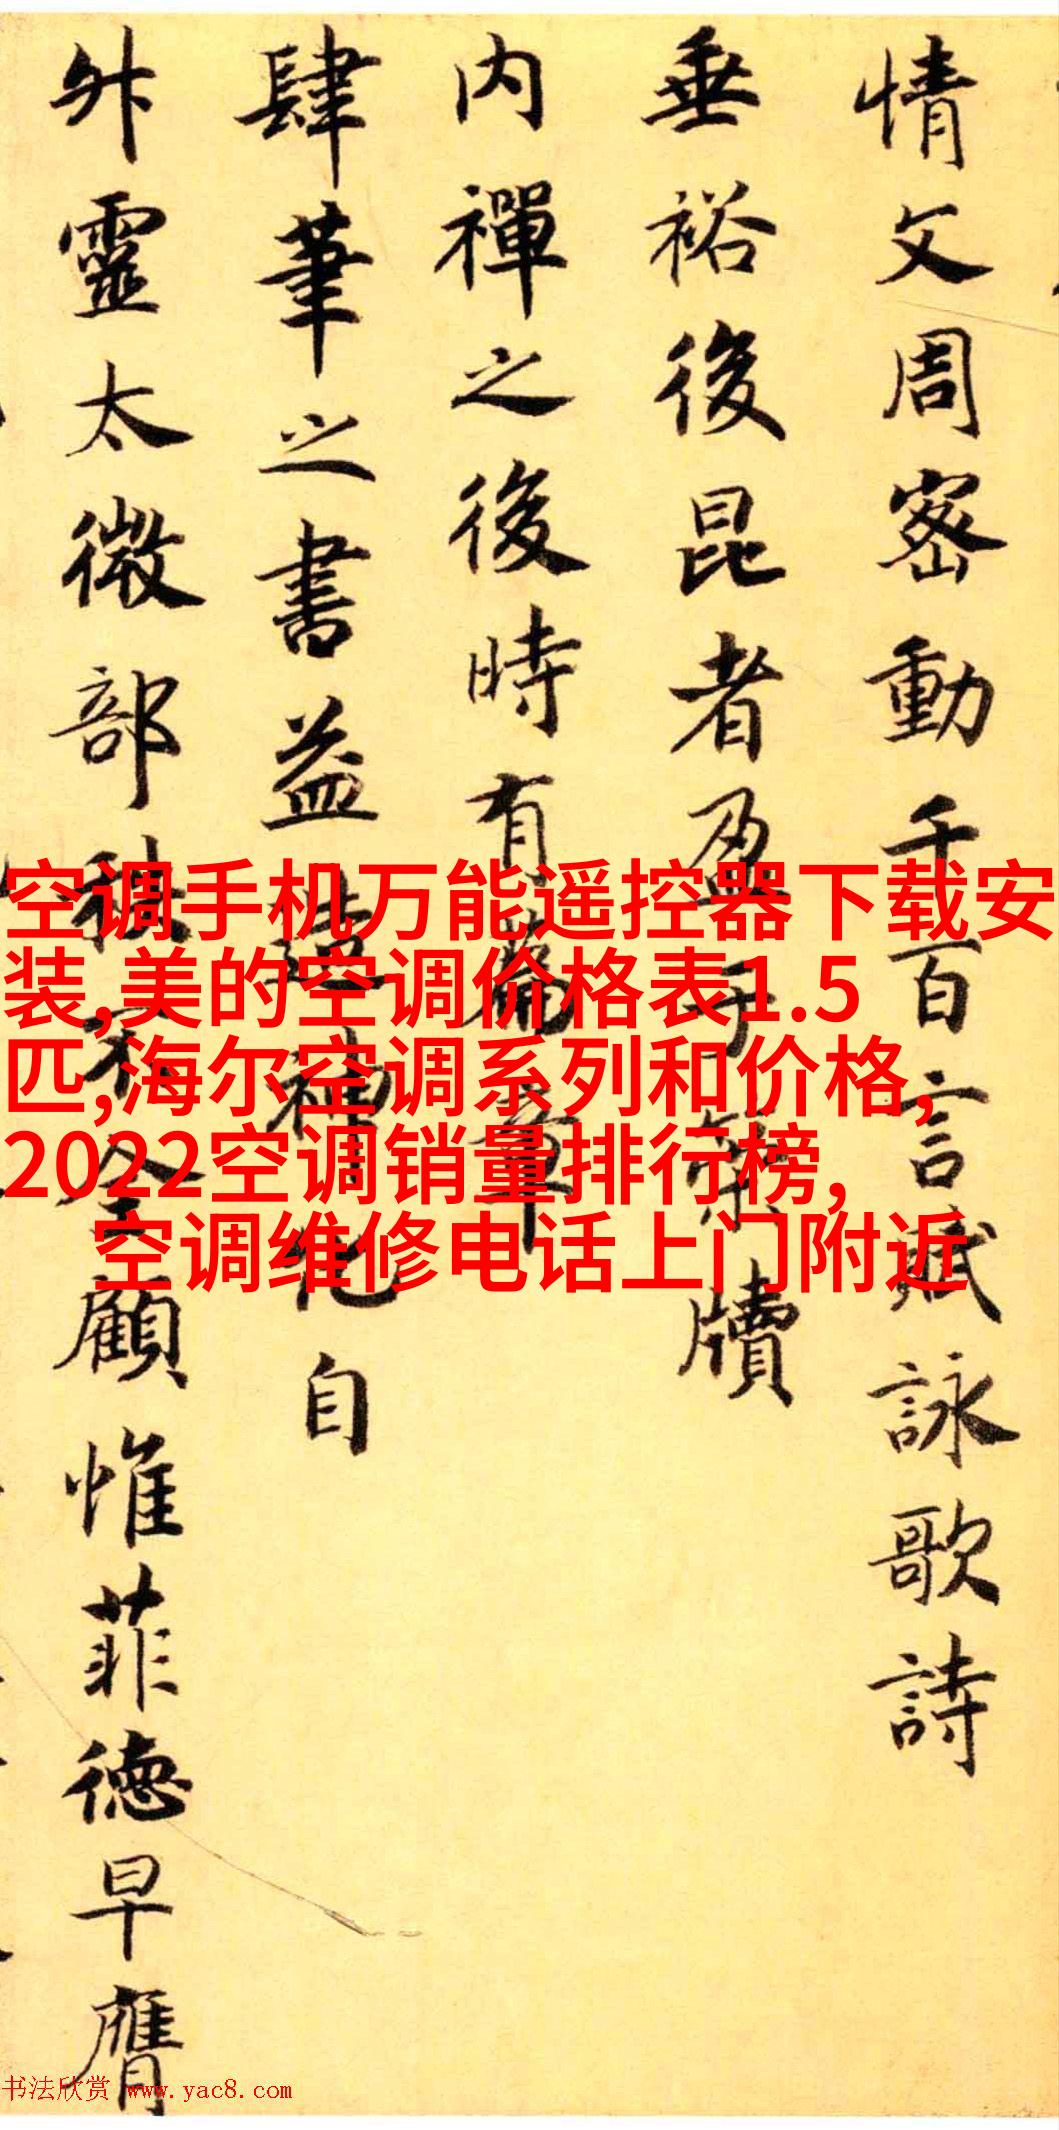 情文周密動千百言賦詠歌詩
垂裕後昆者盈于牘
内禪之後時有篇章
肆筆之書益造神化自
升靈太微部全顧惟菲德早膺
空调手机万能遥控器下载安
装,美的空调价格表1.5
匹,海尔空调系列和价格,
2022空调销量排行榜,
空调维修电话上门附近
书法欣赏 www.yac8.com